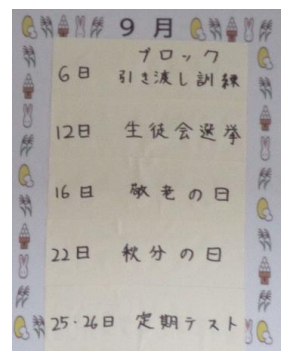 9月
ブロック
6日 引き渡し訓練
12日 生徒会選挙
16日 敬老の日
22日 秋分の日
25・26日 定期テスト